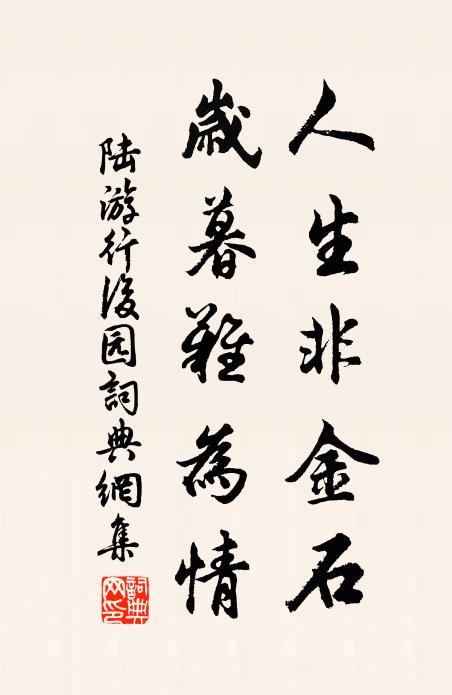 人生非金石
歲暮難為情
陸游行後园詞典網集
詞典网印